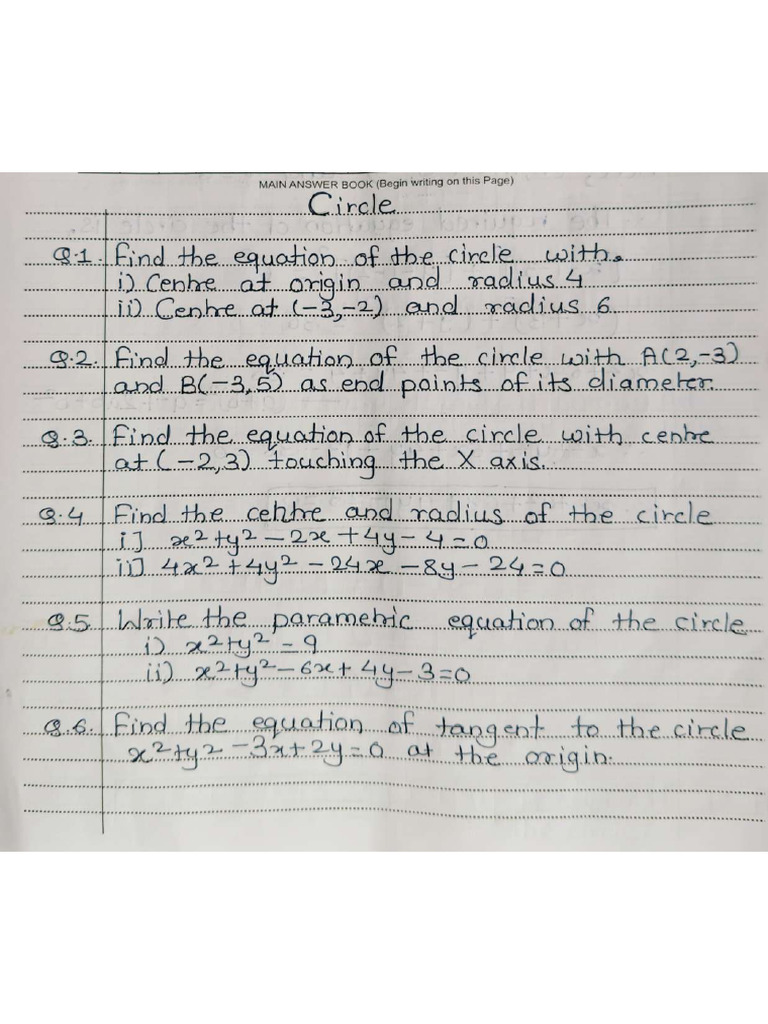 MAIN ANSWER BOOK (Begin writing on this Page)
Circle
Q.1. Find the equation of the circle with.
i) Centre at origin and radius 4
ii) Centre at (-3,-2) and radius 6
Q.2. Find the equation of the circle with A(2,-3)
and B(-3,5) as end points of its diameter.
Q.3. Find the equation of the circle with centre
at (-2,3) touching the X axis.
Q.4 Find the centre and radius of the circle
i] x²+y²-2x+4y-4=0
ii] 4x²+4y²-24x-8y-24=0
Q.5 Write the parametric equation of the circle
i) x²+y²=9
ii) x²+y²-6x+4y-3=0
Q.6. Find the equation of tangent to the circle
x²+y²-3x+2y=0 at the origin.